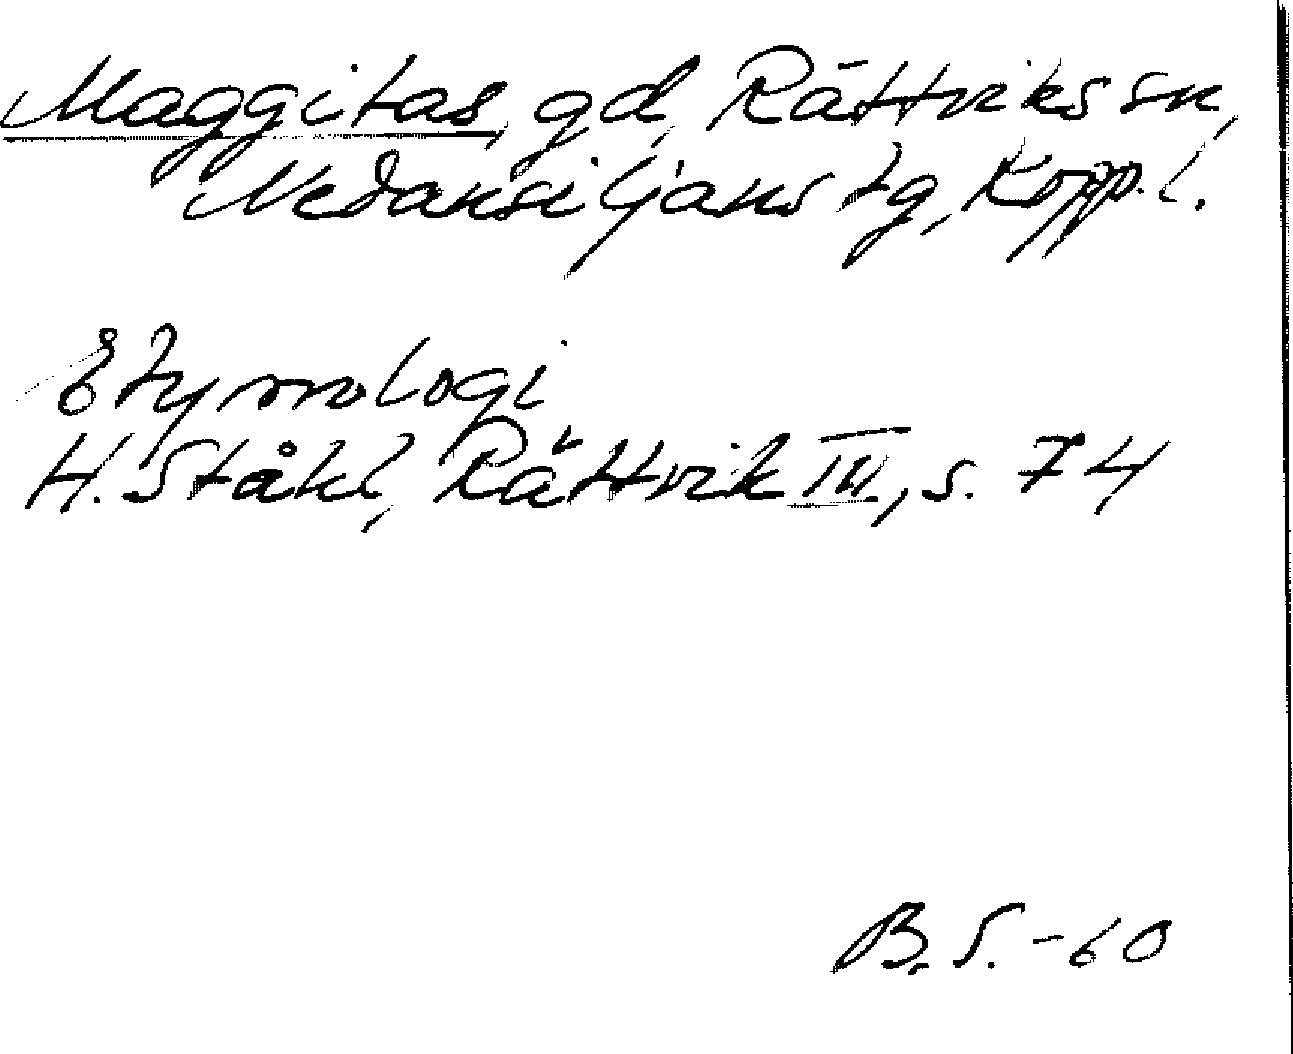 Maggitas, gd, Rättviks sn,
Nedansiljans tg, Kopp. l.
Etymologi
H. Ståhl, Rättvik III, s. 74
B. S. -60